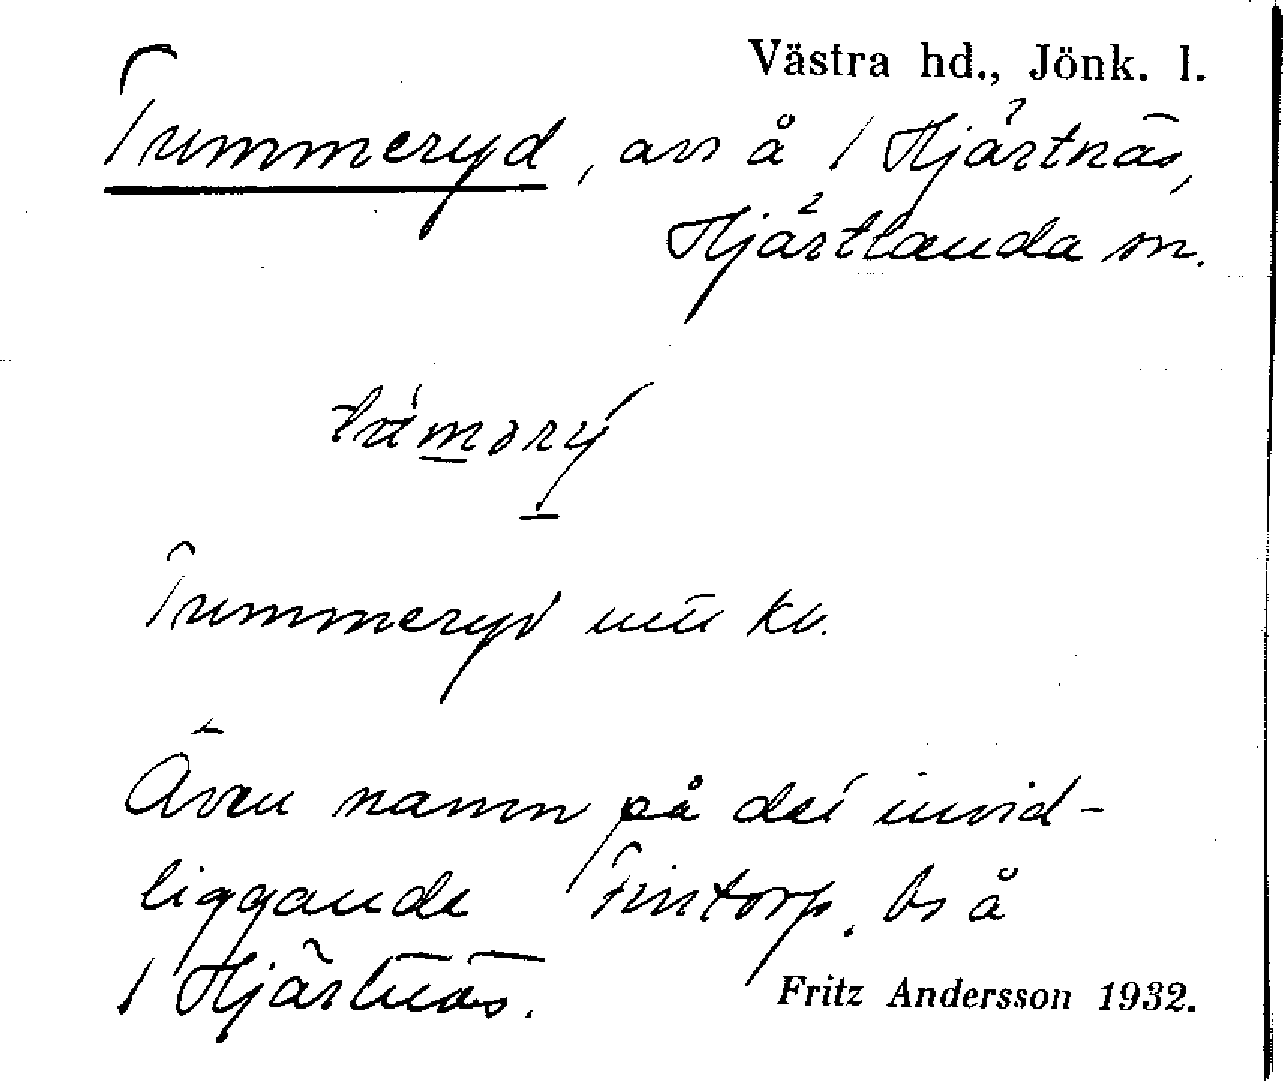 Västra hd., Jönk. l.
Trummeryd, avs å 1 Hjärtnäs,
Hjärtlanda sn.
Trummeryd utt kv.
Även namn på det invid-
liggande Finntorp, bs å
1 Hjärtnäs.
Fritz Andersson 1932.